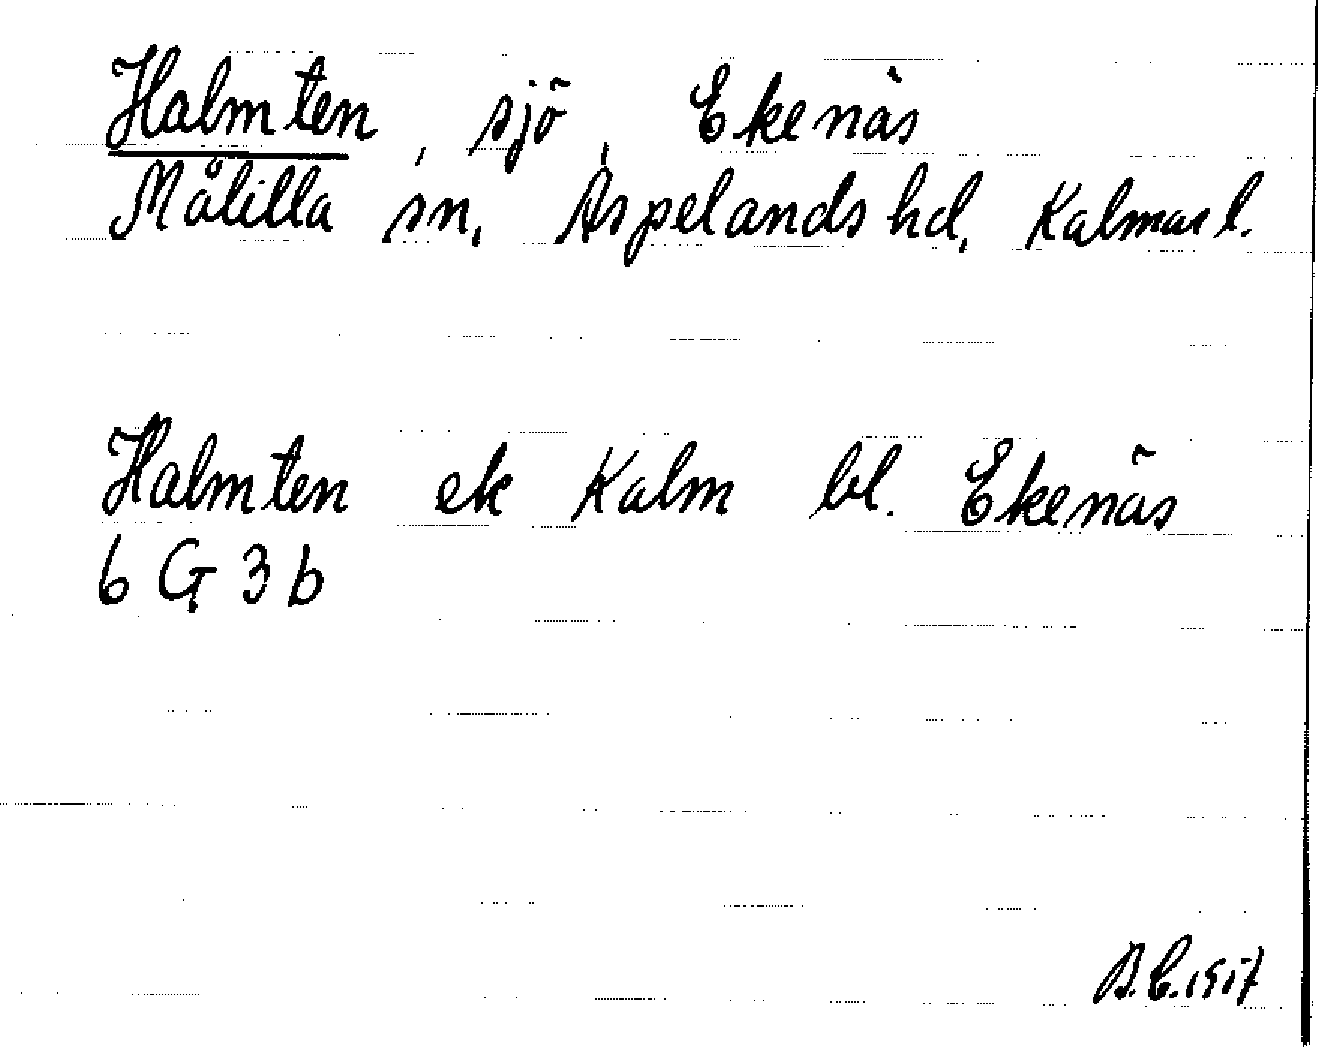 Halmten, sjö, Ekenäs
Målilla sn, Aspelands hd, Kalmar l.
Halmten ek Kalm bl. Ekenäs
6 G 3 b